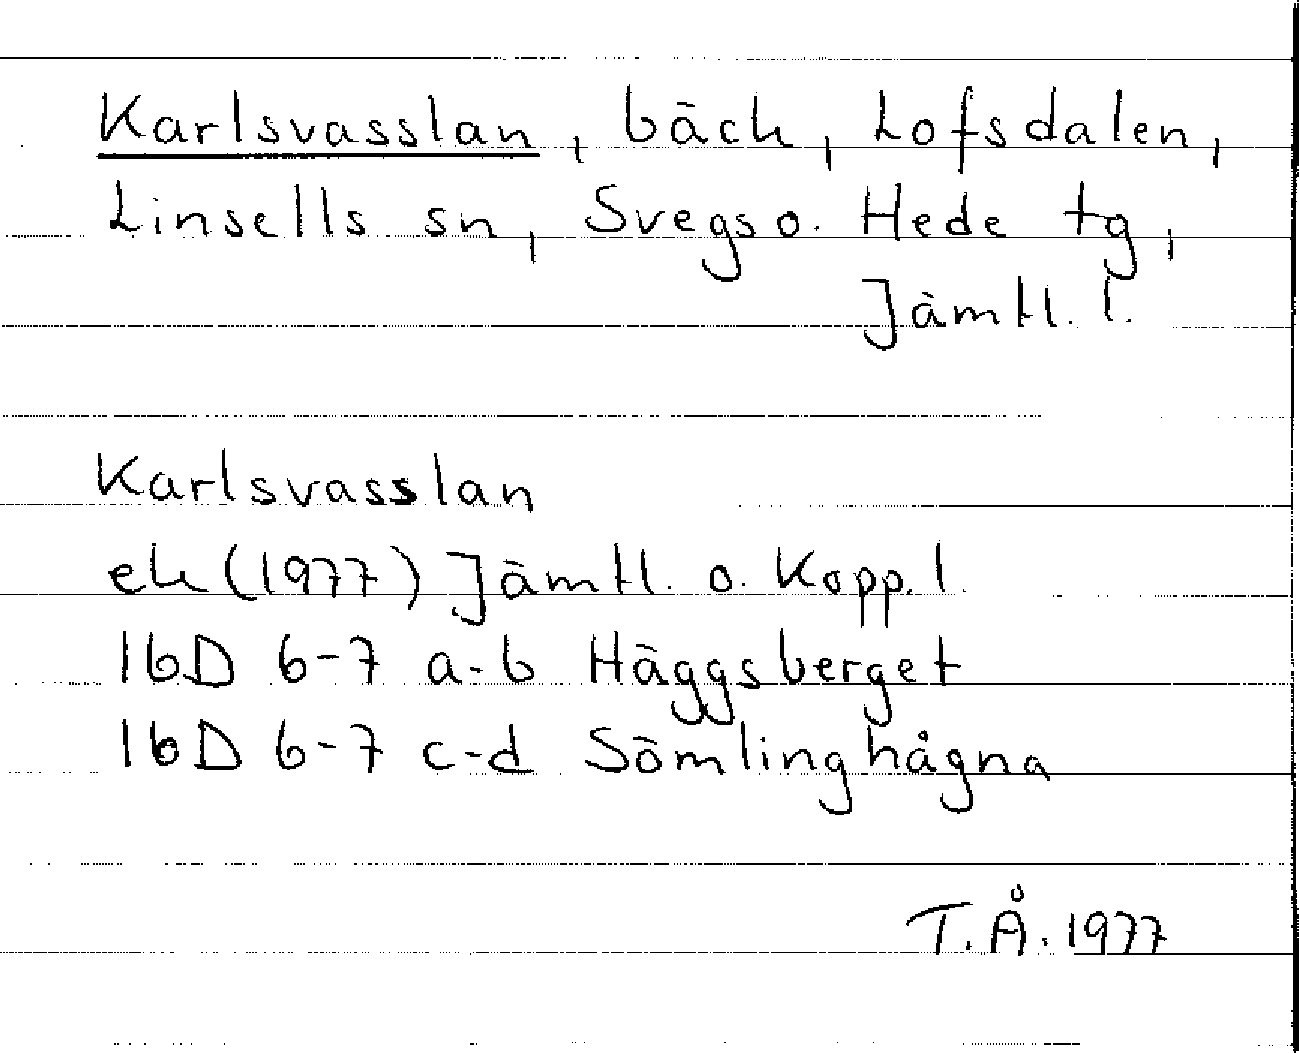 Karlsvasslan, bäck, Lofsdalen,
Linsells sn, Svegs o. Hede tg,
Jämtl. l.
Karlsvasslan
ek (1977) Jämtl. o. Kopp. l.
16D 6-7 a-b Häggsberget
16D 6-7 c-d Sömlinghågna
T.Å. 1977